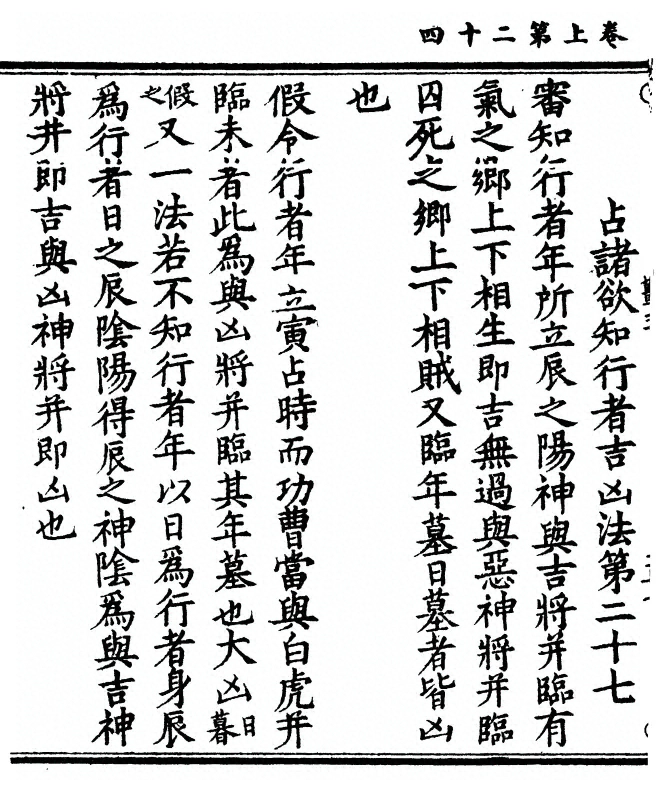 卷上第二十四
占諸欲知行者吉凶法第二十七
審知行者年所立辰之陽神與吉將并臨有
氣之鄉上下相生即吉無過與惡神將并臨
囚死之鄉上下相賊又臨年墓日墓者皆凶
也
假令行者年立寅占時而功曹當與白虎并
臨未者此爲與凶將并臨其年墓也大凶日暮
假之又一法若不知行者年以日爲行者身辰
爲行者日之辰陰陽得辰之神陰爲與吉神
將并即吉與凶神將并即凶也